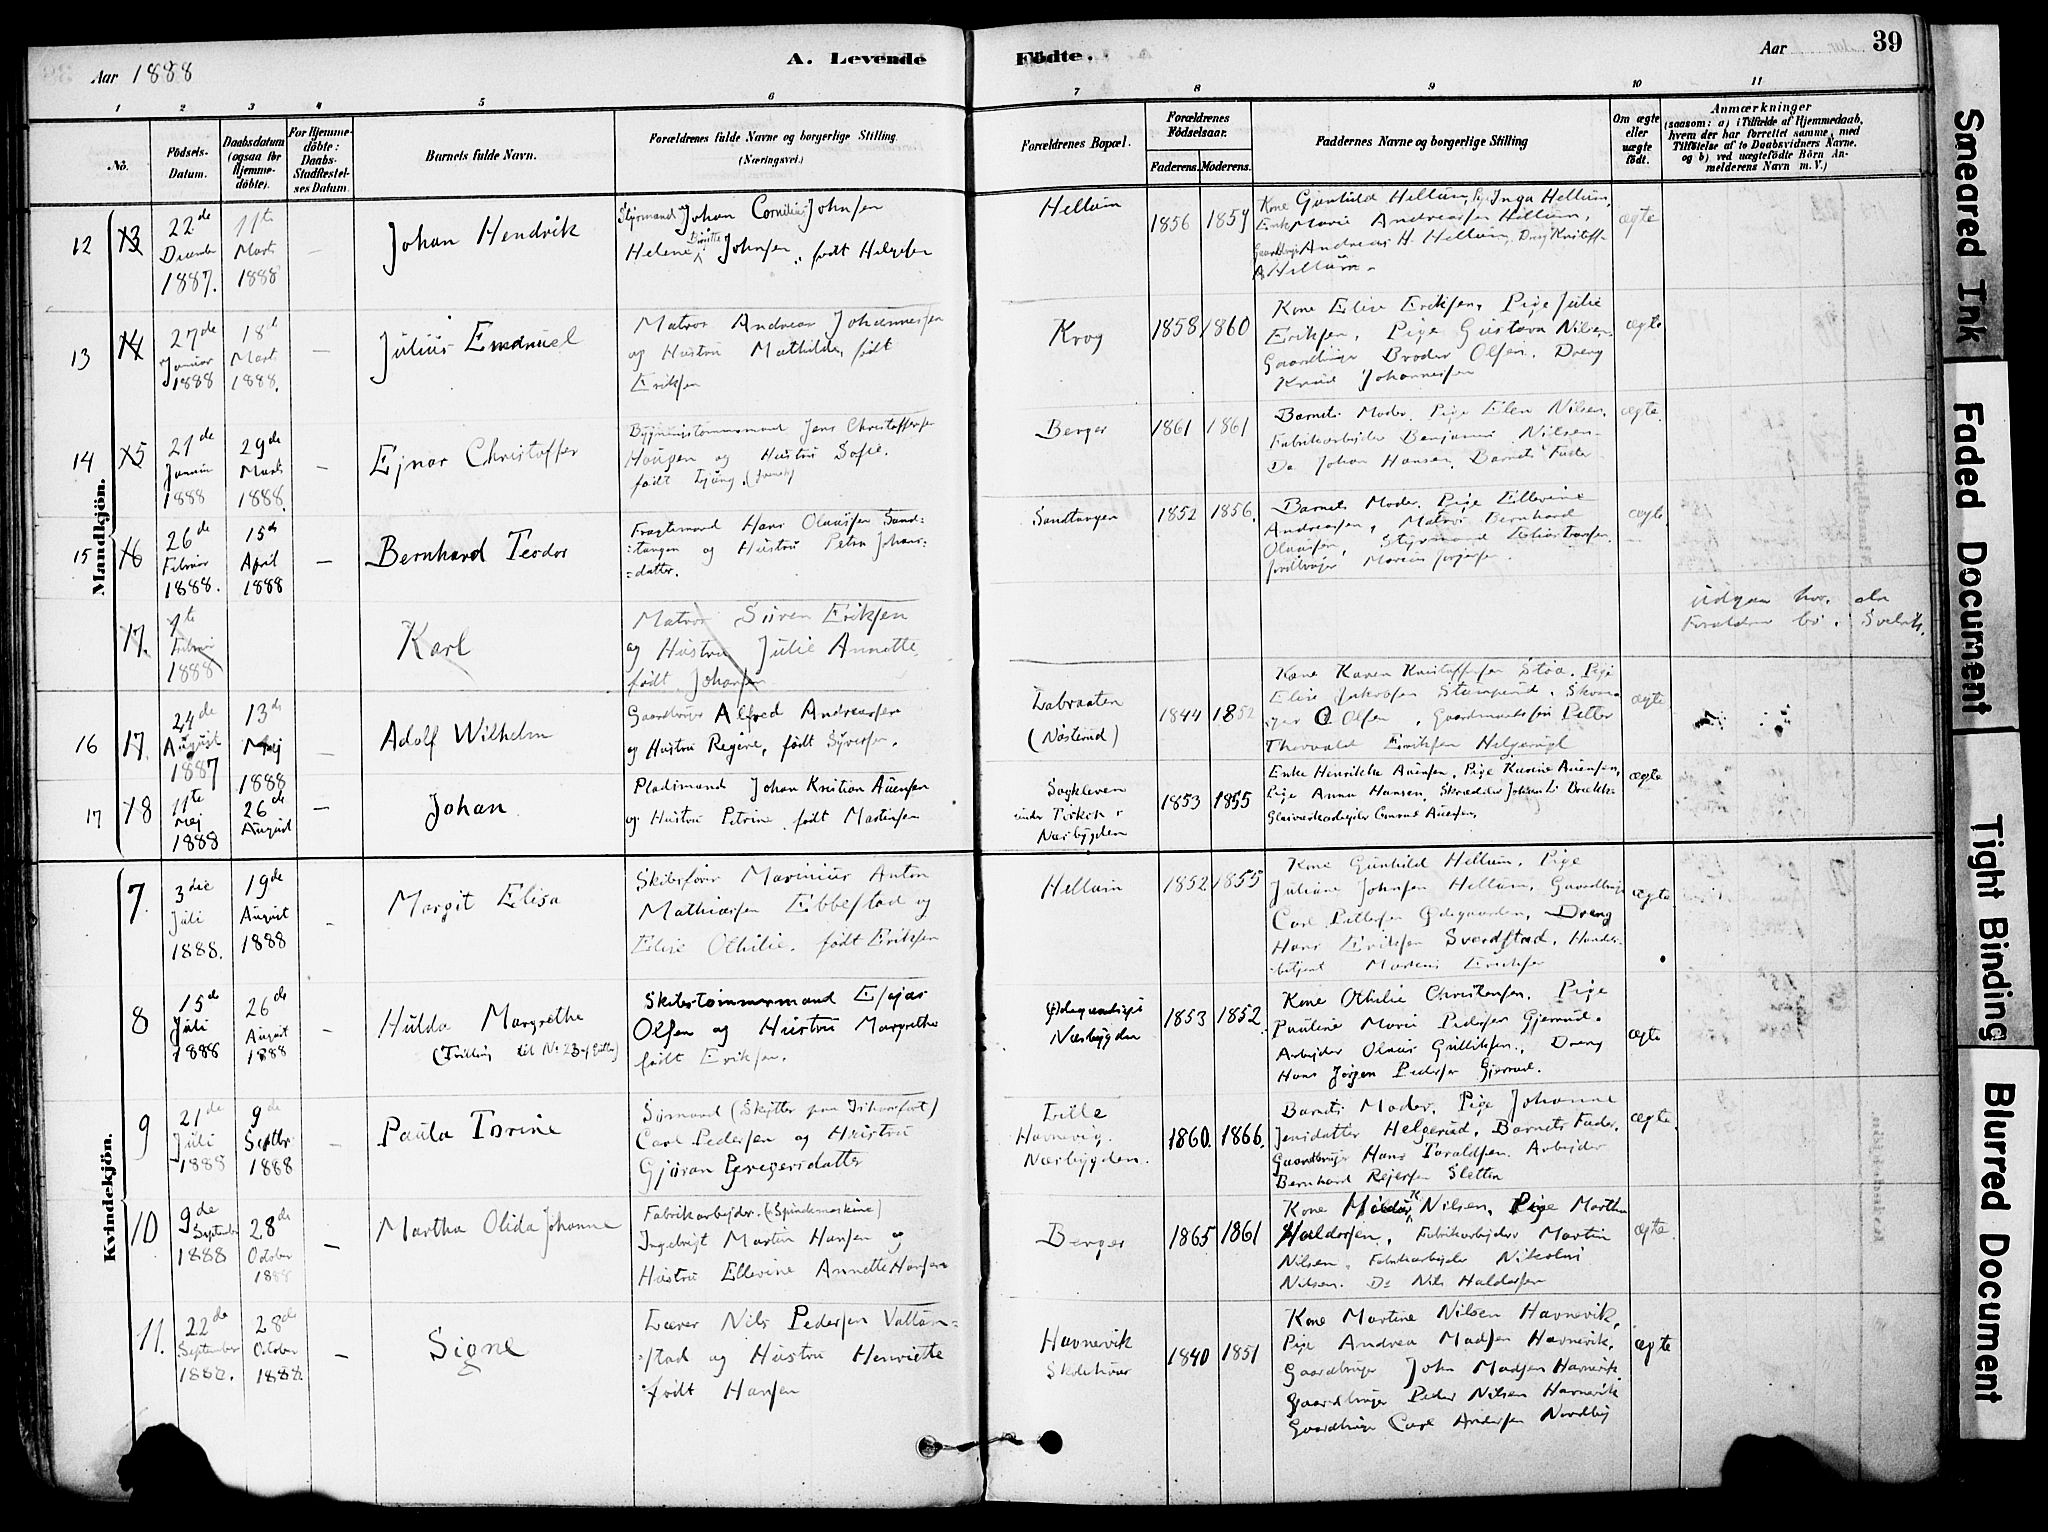 Aar 1888
A. Levende Födte.
Aar
39
1 2 3 4 5 6 7 8 9 10 11
No.
Födsels-Datum.
Daabsdatum (ogsaa for Hjemmedöbte).
For Hjemmedöbte: Daabs-Stadfæstelses Datum.
Barnets fulde Navn.
Forældrenes fulde Navne og borgerlige Stilling.
(Næringsvei.)
Forældrenes Bopæl.
Forældrenes Födselsaar.
Faderens. Moderens.
Faddernes Navne og borgerlige Stilling
Om ægte eller uægte födt.
Anmærkninger
(saasom: a) i Tilfælde af Hjemmedaab,
hvem der har forrettet samme, med
Tilföielse af to Daabsvidners Navne.
og b) ved uægtefödte Börn An-
melderens Navn m. V.)
Mandkjön.
12 13 22de December 1887. 11te Marts 1888 – Johan Hendrik
Styrmand Johan Cornilius Johnsen
Helene Birgitte Johnsen, født Helgesen
Hellum 1856 1859
Kone Gunhild Hellum, Pige Inga Hellum,
Enke Marie Andreasen Hellum,
Gaardbruger Andreas H. Hellum, Dreng Kristoffer
A Hellum.
ægte
13 14 27de Januar 1888 18de Marts 1888. – Julius Emanuel
Matros Andreas Johannesen
og Hustru Mathilde, født
Eriksen
Krog 1858 1860
Kone Elise Eriksen, Pige Julie
Eriksen, Pige Gustava Nilsen,
Gaardbruger Broder Olsen, Dreng
Knud Johannesen
ægte
14 15 21de Januar 1888 29de Marts 1888. – Ejnar Christoffer
Bygningstømmermand Jens Christoffersen
Haugen og Hustru Sofie.
født Ljung. (svensk)
Berger 1861 1861
Barnets Moder, Pige Elen Nilsen,
Fabrikarbejder Benjamin Nilsen
Do Johan Hansen, Barnets Fader
ægte
15 16 26de Februar 1888. 15de April 1888 – Bernhard Teodor
Fragtemand Hans Olausen Sand=
=tangen og Hustru Petra Johans=
=datter.
Sandtangen 1852 1856.
Barnets Moder, Pige Ellevine
Andreasen, Matros Bernhard
Olausen, Styrmand
Jordbruger Marius Jørgensen.
ægte
17. Februar 1888 Karl
Matros Søren Eriksen
og Hustru Julie Annette
født Johansen
Udgaar her, da
Forældrene bo i Svelvik.
16 17 24de August 1887 13de Maj 1888 – Adolf Wilhelm
Gaardbruger Alfred Andreasen
og Hustru Regine, født Syversen.
Labraaten
(Nøsterud)
1844 1852
Kone Karen Kristoffersen Stoa, Pige
Elise Jakobsen Stumperud, Skoma=
=ger O Olsen, Gaardmandssøn Petter
Thorvald Eriksen Helgerud
ægte
17 18 11te Maj 1888 26de August – Johan
Pladsmand Johan Kristian Auensen
og Hustru Petrine født Martinsen
Sagkleven
under
Næsbygden
1853 1855
Enke Henrikke Auensen, Pige Karine Auensen,
Pige Anna Hansen, Skrædder Johan
Glasværksarbejder Auensen,
ægte
Kvindekjön.
7. 3die Juli 1888. 19de August 1888 – Margit Elisa
Skibsfører Marinius Anton
Mathiasen Ebbestad og
Elise Othilie, født Eriksen
Hellum 1852 1855
Kone Gunhild Hellum, Pige
Juliane Johnsen Hellum, Gaardbruger
Carl Pettersen Ødegaarden, Dreng
Hans Eriksen Sverdstad, Handels=
=betjent Markus Eriksen
ægte
8 15de Juli 1888 26de August 1888 – Hulda Margrethe
(Tvilling til No 23 – Gutter)
Skibstømmermand Esajas
Olsen og Hustru Margrethe
født Eriksen.
Næsbygden
1853 1852.
Kone Othilie Christensen, Pige
Pauline Marie Pedersen Gjerrud.
Arbejder Olaus Gulliksen, Dreng
Hans Jørgen Pedersen Gjerrud.
ægte
9 21de Juli 1888 9de Septbr 1888 – Paula Torine
Sømand (Skytter paa Ishavsfart)
Carl Pedersen og Hustru
Gjøran Gregersdatter
Lille
Havnevig.
Næsbygden.
1860. 1866.
Barnets Moder, Pige Johanne
Jensdatter Helgerud, Barnets Fader.
Gaardbruger Hans Toraldsen. Arbejder
Bernhard Rejersen Sletta
ægte
10 9de September 1888 28de October 1888 – Martha Olida Johanne
Fabrikarbejder (Spindemaskine)
Ingebrigt Martin Hansen og
Hustru Ellevine Annette Hansen
Berger 1865 1861
Kone Nilsen, Pige Martha
Haldorsen, Fabrikarbejder Martin
Nilsen, Fabrikarbejder Nikolai
Nilsen. Do Nils Haldorsen
ægte.
11. 22de September 1888. 28de October 1888. – Signe
Lærer Nils Pedersen Vattan=
=stad og Hustru Henriette
født Hansen
Havnevik
Skolehus
1840 1851
Kone Martine Nilsen Havnevik,
Pige Andrea Madsen Havnevik,
Gaardbruger John Madsen Havnevik
Gaardbruger Peder Nilsen Havnevik
Gaardbruger Carl Andersen Nordby
ægte
Smeared Ink
Faded Document
Tight Binding
Blurred Document